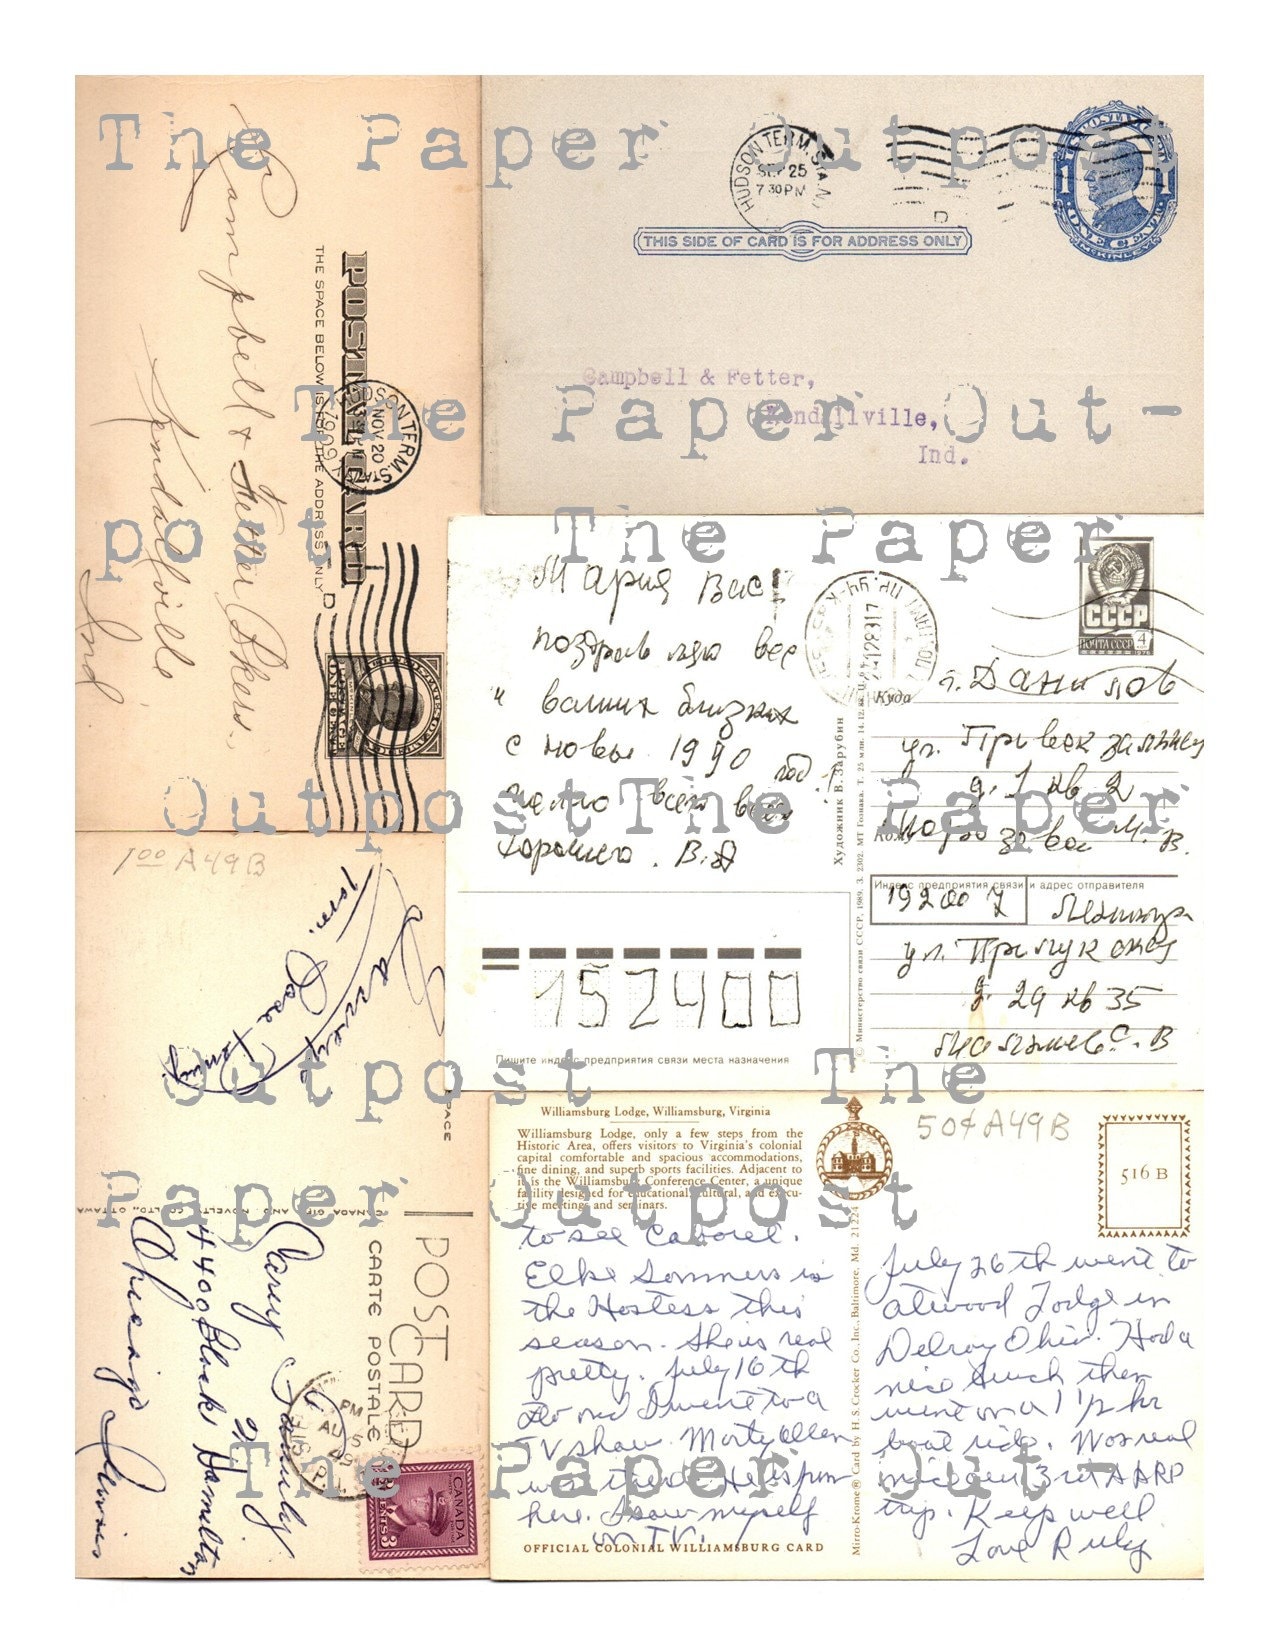 The Paper Outpost
The Paper Out-
post The Paper
Outpost The Paper
Outpost The
Paper Outpost
The Paper Out-
Campbell & Fetter Bkers.,
Kendallville
Ind
POSTAL CARD
THE SPACE BELOW IS FOR THE ADDRESS ONLY
HUDSON TERM. STA.
NOV 20
1909
D
HUDSON TERM. STA. N.Y.
SEP 25
7 30 PM
D
POSTAGE
1 1
ONE CENT
McKINLEY
THIS SIDE OF CARD IS FOR ADDRESS ONLY
Campbell & Fetter,
Kendallville,
Ind.
Мария Вас!
поздравляю вас
и ваших близких
с новым 1990 год
желаю всего всего
хорошего. В.
СССР
ПОЧТА СССР 4
1976
Куда г. Данилов
ул. Привокзальная
д. 1 кв 2
Кому
М. В.
Индекс предприятия связи и адрес отправителя
192007
ул. Прилукская
д. 29 кв 35
С. В
152400
Пишите индекс предприятия связи места назначения
Художник В. Зарубин
© Министерство связи СССР, 1989. З. 2302. МТ Гознака. Т. 25 млн. 14.12.88.
1.00 A49B
SPACE
CANADA GIFT AND NOVELTY CO. LTD., OTTAWA
POST CARD
CARTE POSTALE
Family
4400 Hamilton
Chicago
Illinois
PM
AU 5
49
CANADA
3 CENTS 3
Williamsburg Lodge, Williamsburg, Virginia
Williamsburg Lodge, only a few steps from the
Historic Area, offers visitors to Virginia's colonial
capital comfortable and spacious accommodations,
fine dining, and superb sports facilities. Adjacent to
it is the Williamsburg Conference Center, a unique
facility designed for educational, cultural, and execu-
tive meetings and seminars.
50¢ A49B
516 B
to see Cabaret.
Elke Sommers is
the Hostess this
season. She is real
pretty. July 16th
Flo and I went to a
TV show. Marty Allen
was there. He is fun
here. I saw myself
on TV.
OFFICIAL COLONIAL WILLIAMSBURG CARD
Mirro-Krome® Card by H. S. Crocker Co., Inc., Baltimore, Md. 21224
July 26th went to
atwood Lodge in
Delroy Ohio. Had a
nice lunch then
went on a 1 1/2 hr
boat ride. Was real
nice our 3rd AARP
trip. Keep well
Love Ruby